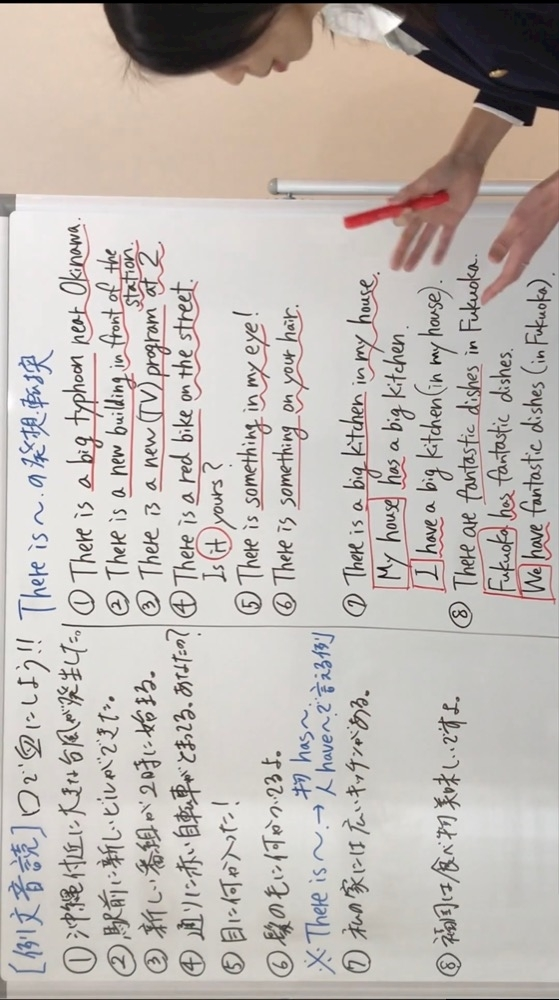 [例文音読] 口でWにしよう!!
① 沖縄付近に大きな台風が発生した。
② 駅前に新しいビルができた。
③ 新しい番組が2時に始まる。
④ 通りに赤い自転車がとまってる。あなたの?
⑤ 目に何か入った!
⑥ 髪の毛に何かついてるよ。
※ There is ～. → 物 has～
人 have～で言える例
⑦ 私の家には広いキッチンがある。
⑧ 福岡は食べ物美味しいですよ。
There is ～. の発想転換
① There is a big typhoon near Okinawa.
② There is a new building in front of the
station.
③ There is a new (TV) program at 2
④ There is a red bike on the street.
Is it yours?
⑤ There is something in my eye!
⑥ There is something on your hair.
⑦ There is a big kitchen in my house.
My house has a big kitchen.
I have a big kitchen (in my house).
⑧ There are fantastic dishes in Fukuoka.
Fukuoka has fantastic dishes.
We have fantastic dishes (in Fukuoka)